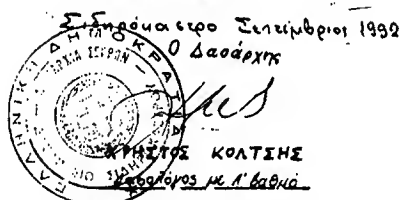 Σιδηρόκαστρο Σεπτέμβριος 1992
Ο Δασάρχης
ΕΛΛΗΝΙΚΗ ΔΗΜΟΚΡΑΤΙΑ
ΧΡΗΣΤΟΣ ΚΟΛΤΣΗΣ
Δασολόγος με Α' βαθμό